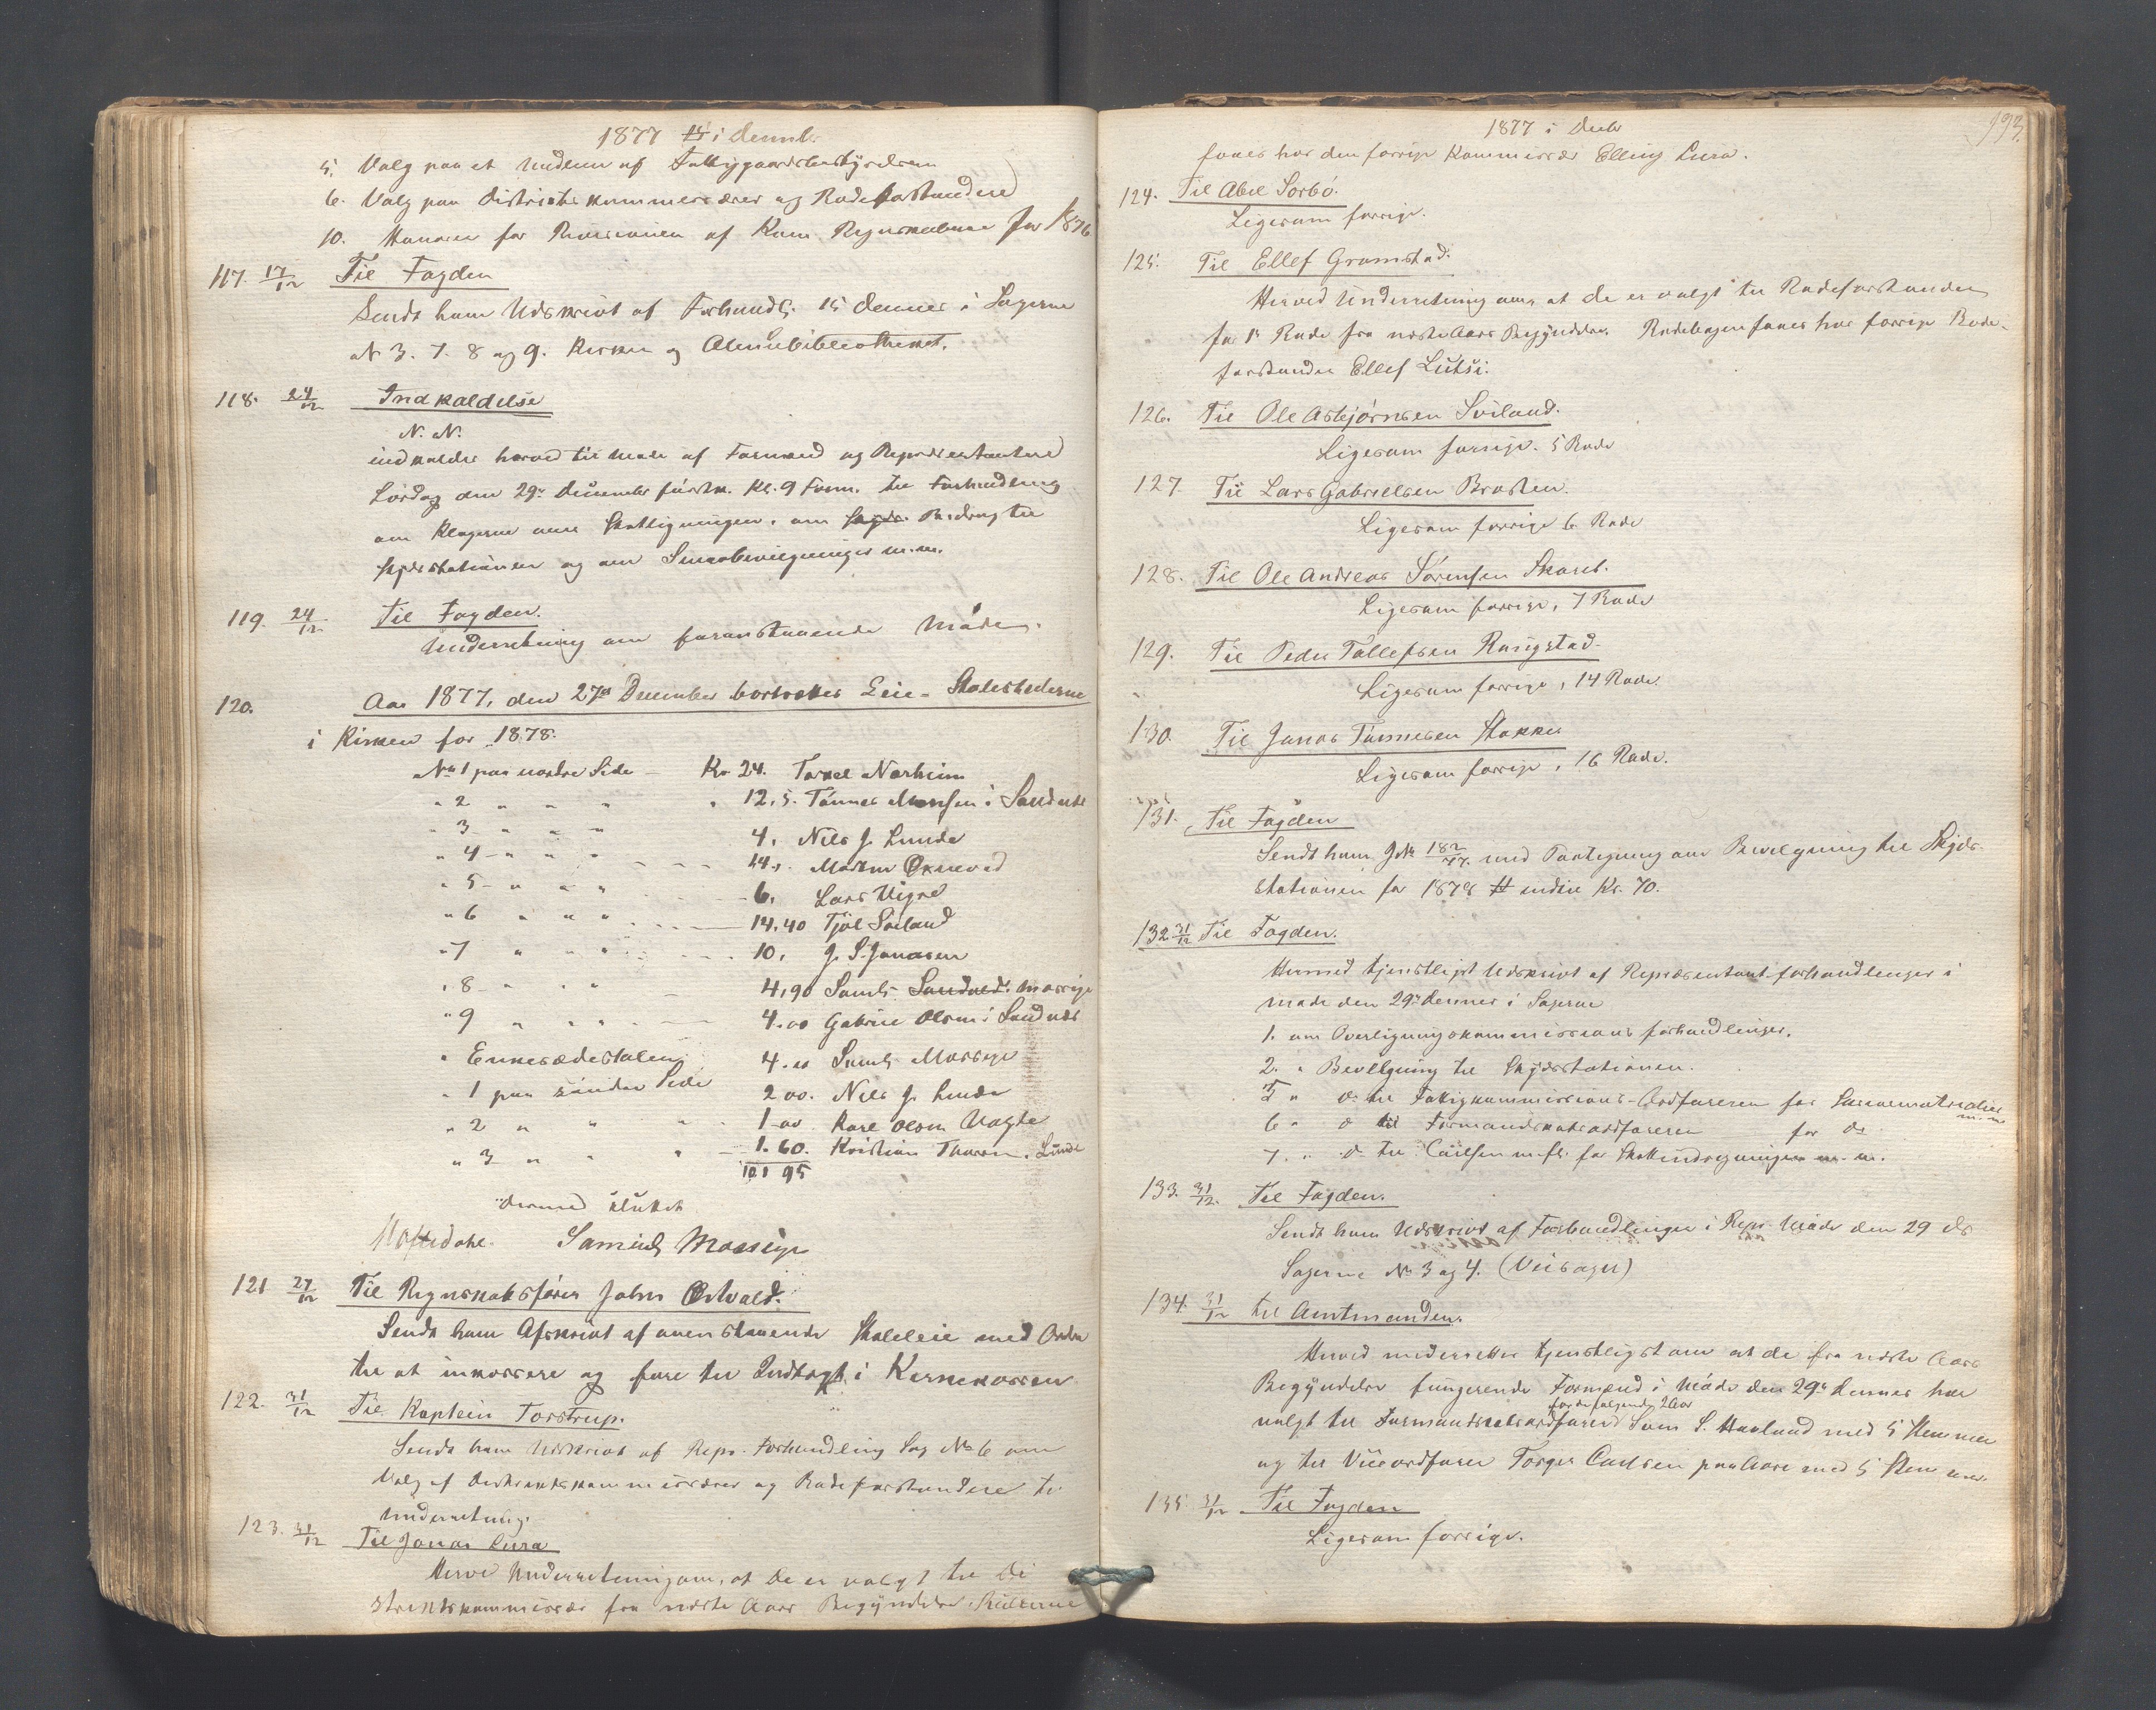 1877 i Decemb.
5. Valg paa et Medlem af Fattiggaardsbestyrelsen
6. Valg paa Distriktskommissærer og Rodeforstandere
10. Honorar for Revisionen af Kom. Regnskaberne for 1876
117. 17/12 Til Fogden
Sendt ham Udskrivt af Forhandl. 15 dennes i Sagerne
N 3. 7. 8 og 9. Kirken og Almuebibliotheket.
118. 24/12 Indkaldelse
N. N.
indkaldes herved til Møde af Formænd og Repræsentantere
Lørdag den 29de December førstk. Kl. 9 Form. til Forhandling
om Klagerne over Skatligningen, om Skyds. Bidrag til
Skydsstationen og om Lensebevilgninger m.m.
119. 24/12 Til Fogden.
Underretning om foranstaaende Møde.
120. Aar 1877, den 27de December bortsattes Leie-Stolestederne
i Kirken for 1878.
No 1 paa nordre Side – Kr 24. Torkel Norheim
" 2 " " " " 12,5. Tønnes Monsen i Sandnes
" 3 " " " 4, Nils J. Lunde
" 4 " " " 14, Morten Øxnevad
" 5 " " " 6, Lars Vigre
" 6 " " " 14,40 Tjøl Soiland
" 7 " " " 10, J. S. Jonasen
" 8 " " " 4,90 Saml. Sandved. Mossige
" 9 " " " 4.00 Gabriel Olsen i Sandnes
" Enkesædestolen 4.00 Saml. Mossige
" 1 paa søndre Side 2 00. Nils J. Lunde
" 2 " " " 1-00 Karl Olsen Vagle
" 3 " " " 1.60. Kristian Thorsen, Lunde
101 95
dermed sluttet
Maftedahl. Samuel Mossige
121 27/12 Til Regnskabsfører John Østvold.
Sendt ham Afskrivt af ovenstaaende Stoleleie med Ordre
til at inkassere og føre til Indtægt i Kirkekassen
122. 31/12 Til Kaptein Torstrup.
Sendt ham Udskrivt af Repr. Forhandling Sag No 6 om
Valg af Distriktskommissærer og Rodeforstandere til
Underretning.
123. 31/12 Til Jonas Lura
Herved Underretning om, at De er valgt til Di
striktskommissær fra næste Aars Begyndelse.
193.
1877 i Decbr
faaes hos den forrige Kommissær Elling Lura.
124. Til Abel Sørbø.
Ligesom forrige.
125. Til Ellef Gramstad.
Herved Underretning om, at de er valgt til Rodeforstander
for 1ste Rode fra næste Aars Begyndelse. Rodebogen faaes hos forrige Rode-
forstander Ellef Lutsi.
126. Til Ole Asbjørnsen Sviland.
Ligesom forrige. 5 Rode
127. Til Lars Gabrielsen Brasten.
Ligesom forrige 6 Rode
128. Til Ole Andreas Sørensen Skaret.
Ligesom forrige, 7 Rode
129. Til Peder Tollefsen Ringstad.
Ligesom forrige, 14 Rode.
130. Til Jonas Tønnesen Stokke
Ligesom forrige, 16 Rode.
131. Til Fogden
Sendt ham JNo 182/77 med Paategning om Bevilgning til Skyds-
stationen for 1878 Kr. 70.
132 31/12 Til Fogden.
Hermed tjenstligst Udskrivt af Repræsentantforhandlinger i
møde den 29de dennes i Sagerne
1. om Overligningskommissions forhandlinger.
2. " Bevilgning til Skydsstationen.
5 " do til Fattigkommissions-Ordføreren for Skrivematerialier m.m
6 " do til Formandskabsordføreren for do
7. " do til Carlsen m. fl. for Skatteindsigning m. m.
133. 31/12. Til Fogden.
Sendt ham Udskrivt af Forhandlinger i Repr. Møde den 29 ds
Sagerne No 3 og 4. (Veisager)
134. 31/12 Til Amtmanden.
Herved underrettes tjenstligst om at de fra næste Aars
Begyndelse fungerende Formænd i Møde den 29de dennes har
for de følgende 2 Aar
valgt til Formandskabsordfører Søm S. Havland med 5 Stemmer
og til Viceordfører Torger Carlsen paa Aase med 5 Stemmer.
135. 31/12 Til Fogden
Ligesom forrige.